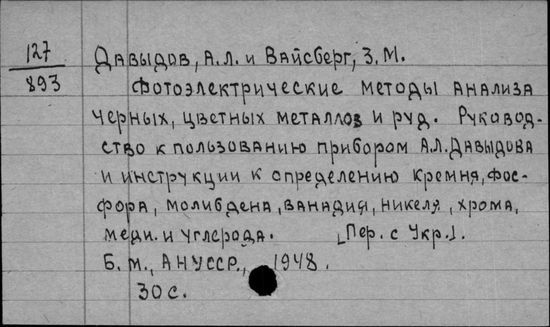 127
893
Давыдов, А.Л. и Вайсберг, З.М.
Фотоэлектрические методы анализа
черных, цветных металлов и руд. Руковод-
ство к пользованию прибором А.Л.Давыдова
и инструкции к определению кремня, фос-
фора, молибдена, ванадия, никеля, хрома,
меди и углерода. [Пер. с Укр.].
Б.м., АНУССР, 1948.
30 с.